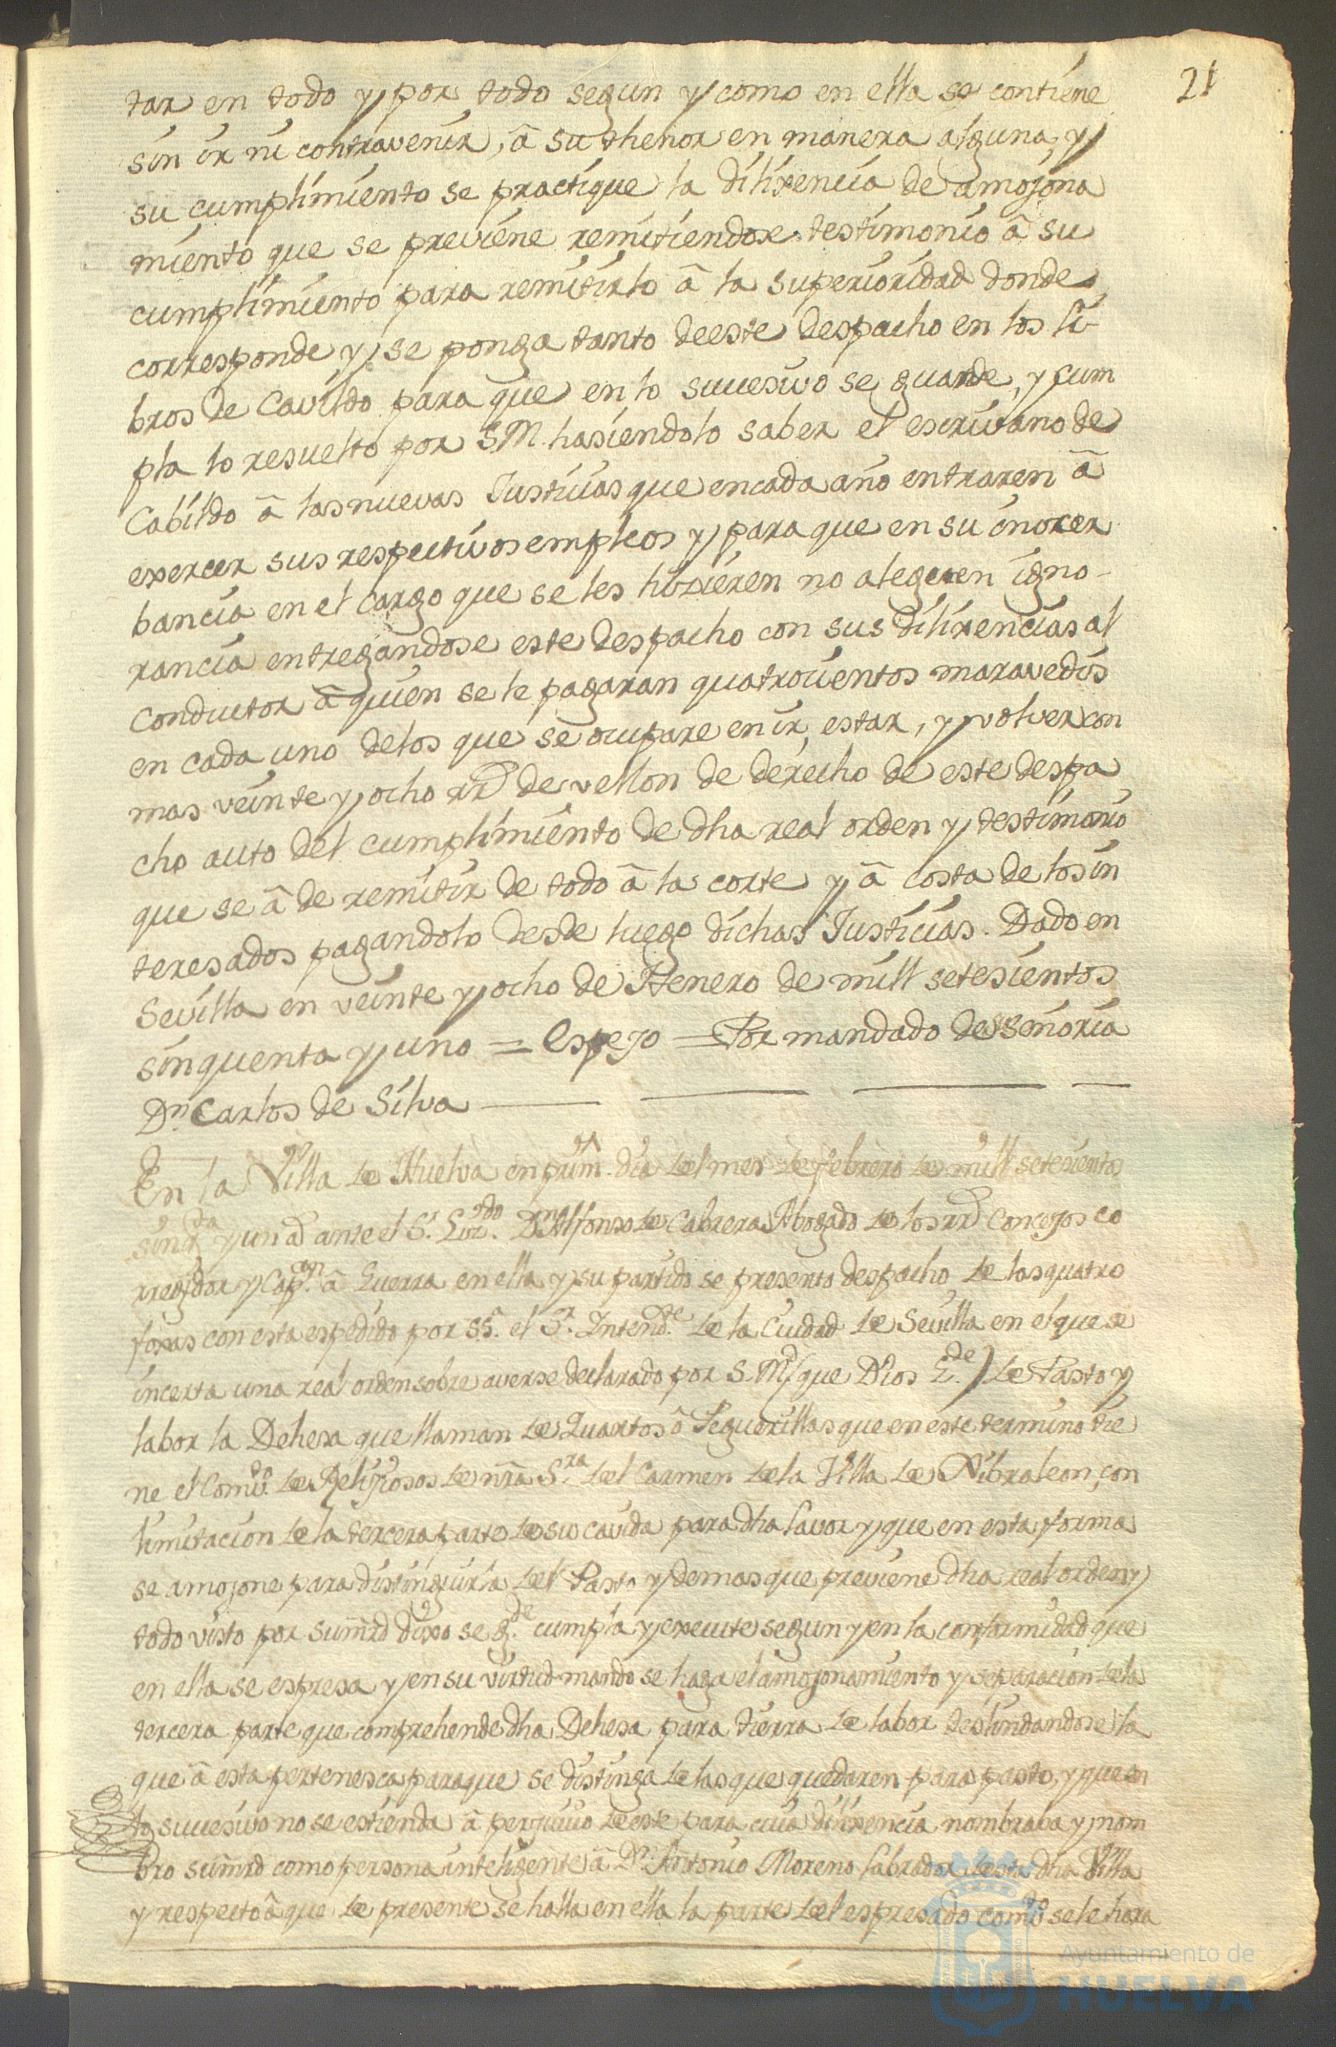 21
tar en todo y por todo segun y como en ella se contiene
sin ir ni contravenir, â su thenor en manera alguna, y
su cumplimiento se practique la dilixencia de amojona
miento que se previene remitiendose testimonio â su
cumplimiento para remitirlo â la superioridad donde
corresponde y se ponga tanto deeste despacho en los li-
bros de Cavildo para que en lo sucesivo se guarde, y cum
pla lo resuelto por S M. hasiendolo saber el escrivano de
Cabildo â las nuevas Justicias que encada año entraren â
exercer sus respectivos empleos y para que en su inoxer
bancia en el cargo que se les hizieren no aleguen igno-
rancia entregandose este despacho con sus dilixencias al
conductor â quien se le pagaran quatrocientos maravedis
en cada uno delos que se ocupare en ir, estar, y volver con
mas veinte y ocho rr.s de vellon de derecho de este despa
cho auto del cumplimiento de dha real orden y testimonio
que se â de remitir de todo â la corte y â costa de los in
teresados pagandolo desde luego dichas Justicias. Dado en
Sevilla en veinte y ocho de Henero de mill setesientos
sinquenta y uno = Espejo = Por mandado de su señoria
Dn. Carlos de Silva
En la Villa de Huelva en prim.o dia del mes de febrero de mill setesientos
sinq.ta y un a.s ante el S.r Liz.do Dn. Alfonso de Cabrera Abogado de los rr.s Concejos co
rregidor y Cap.n â Guerra en ella y su partido se presento despacho de las quatro
foxas con esta espedido por SS.a el S.r Intend.te de la Ciudad de Sevilla en el que se
incerta una real orden sobre averse declarado por S. M.d (que Dios g.de) de Pasto y
labor la Dehesa que llaman de Quartos ô Seguerillas que en este termino tie
ne el Comb.to de Relijiosos de nra S.ra del Carmen de la Villa de Gibraleon, con
limitacion de la tercera parte de su cavida para dha lavor y que en esta forma
se amojone para distinguirla del Pasto y demas que previene dha real orden y
todo visto por su mrd dixo se g.de cumpla y execute segun y en la conformidad que
en ella se espresa y en su virtud mando se haga el amojonamiento y separacion de la
tercera parte que comprehende dha Dehesa para tierra de labor deslindandose la
que â esta pertenesca para que se distinga de las que quedaren para pasto, y que en
lo sucesivo no se estienda â perjuicio de este para cuia dilixencia nombraba y nom
bro su mrd como persona inteligente â Dn. Antonio Moreno labrador de esta dha Villa
y respecto â que de presente se halla en ella la parte del espresado comb.to se le hara
Ayuntamiento de
HUELVA